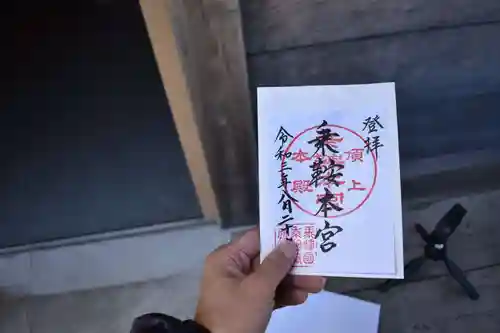 登拝
乗鞍本宮
頂上
本殿
令和三年八月二十